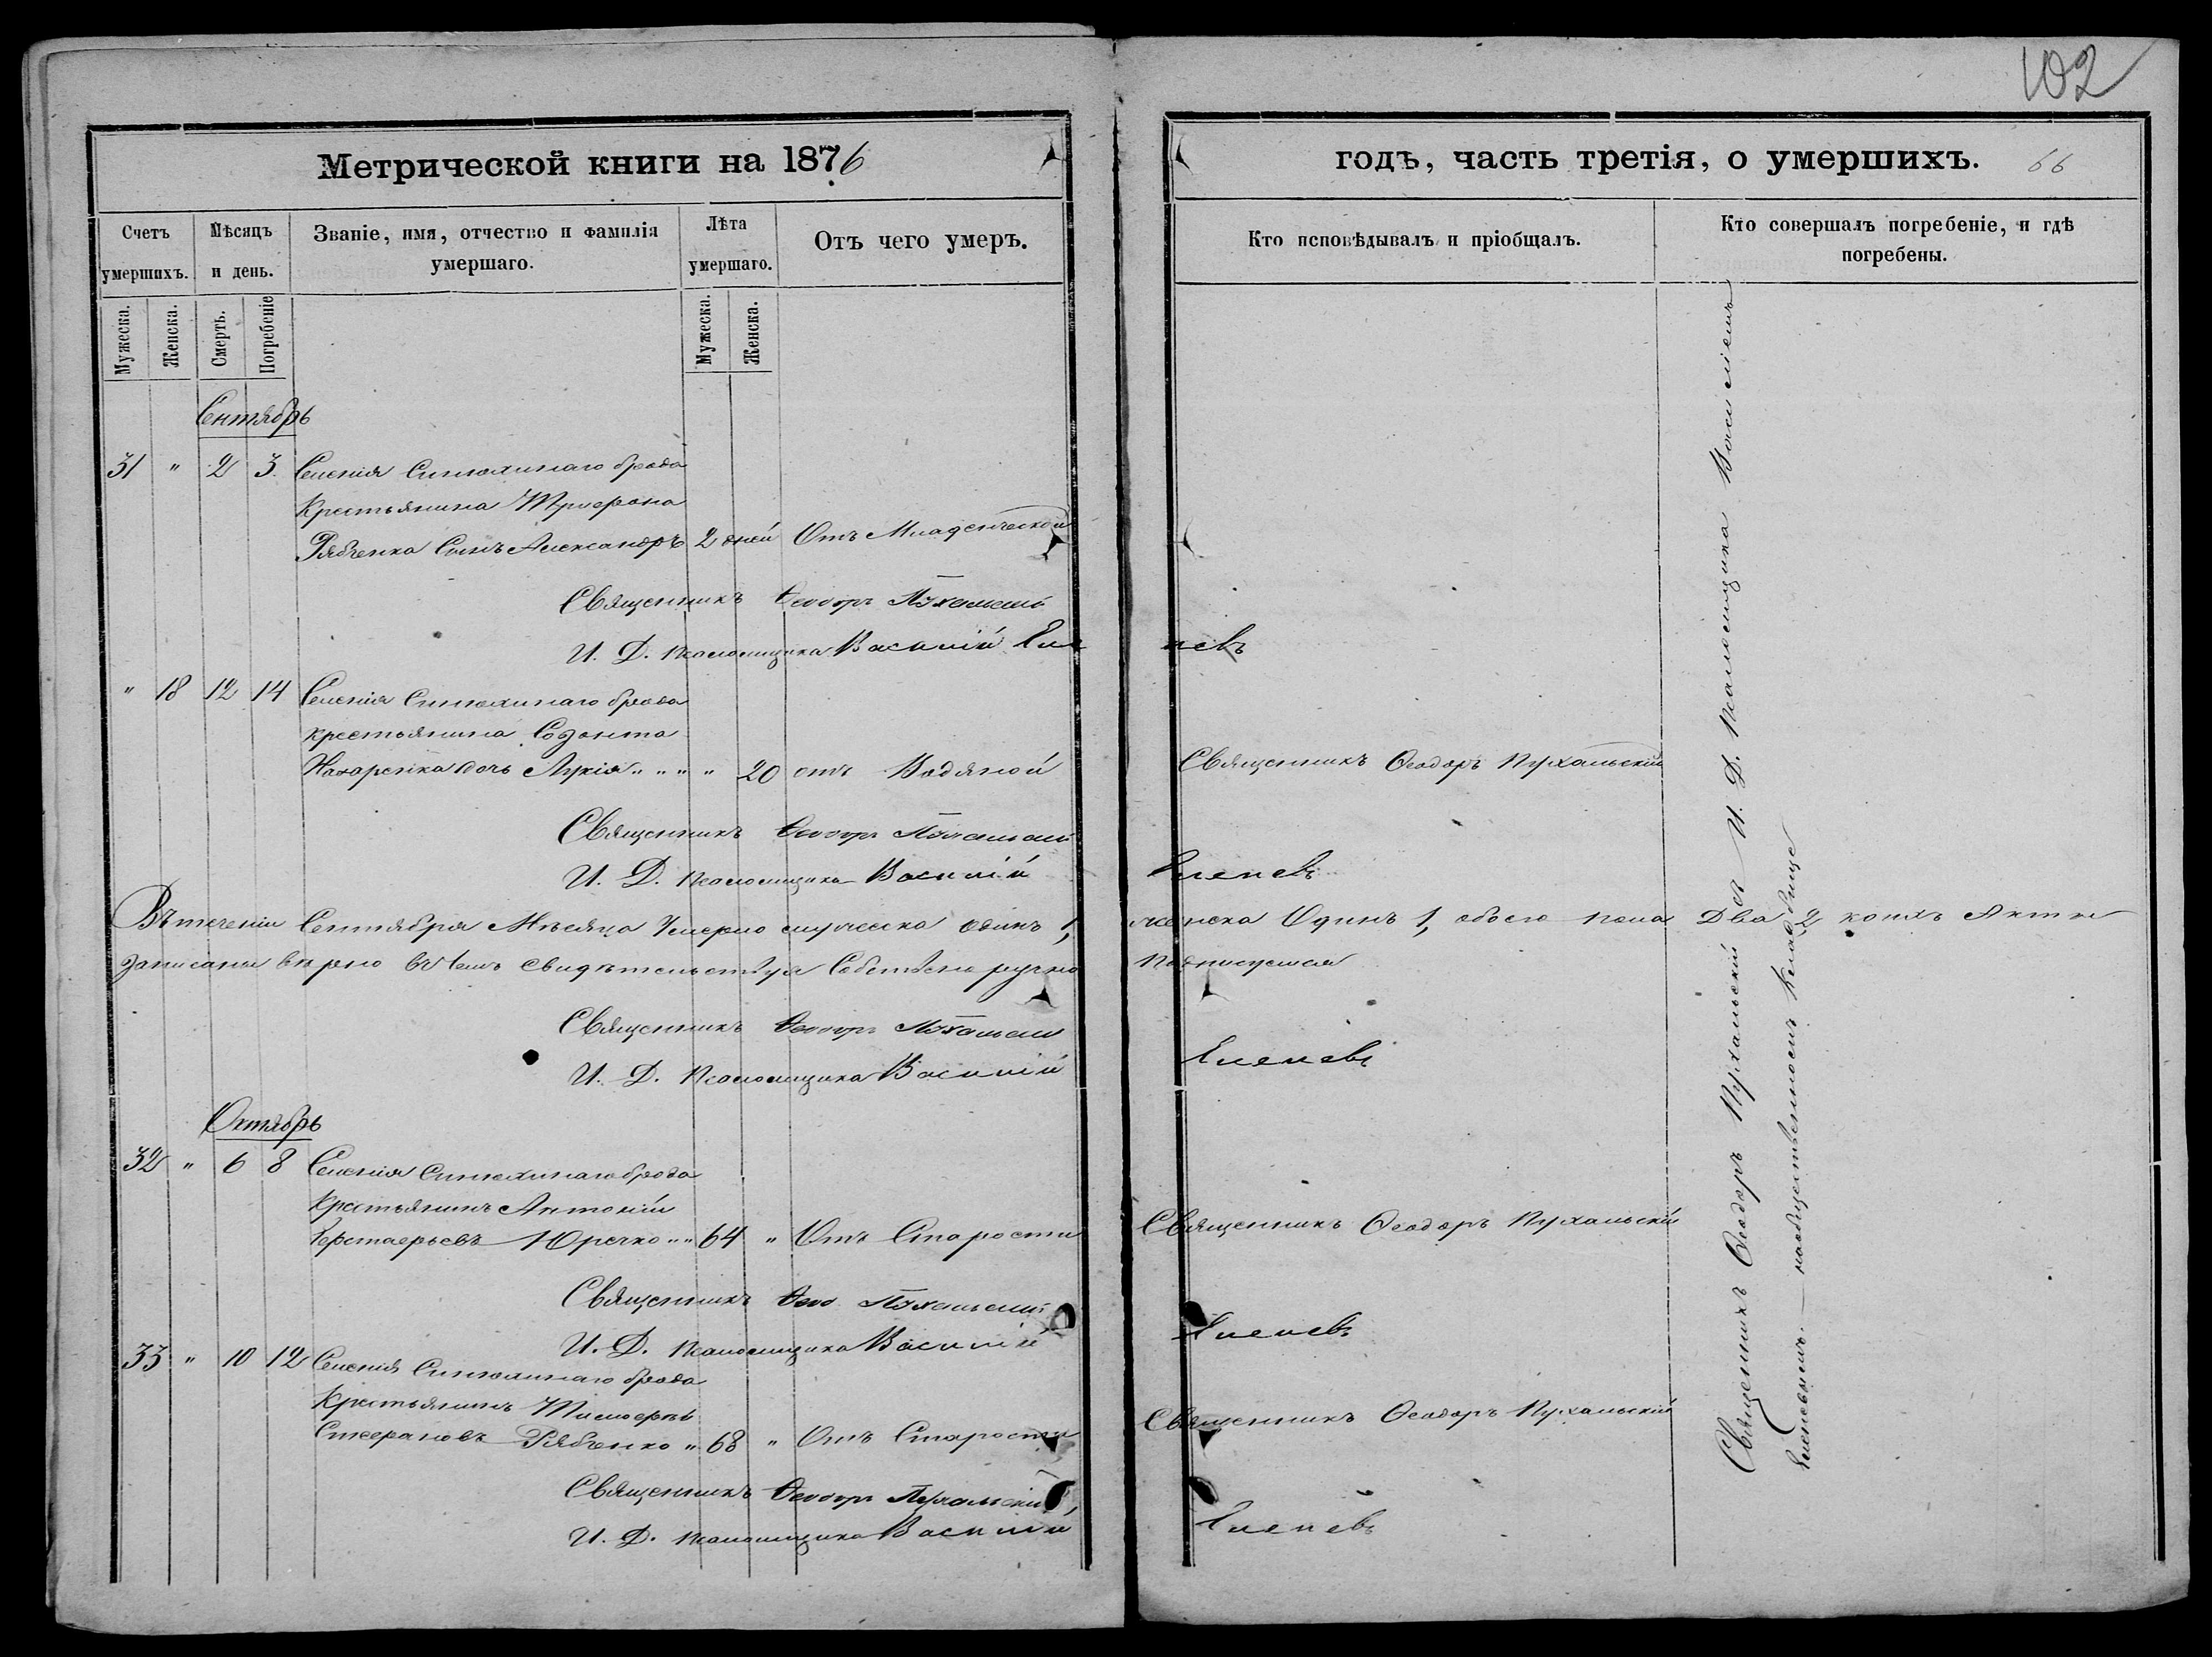 102
Метрической книги на 1876
годъ, часть третія, о умершихъ. 66
Счетъ умершихъ.
Мѣсяцъ и день.
Званіе, имя, отчество и фамилія умершаго.
Лѣта умершаго.
Отъ чего умеръ.
Кто исповѣдывалъ и пріобщалъ.
Кто совершалъ погребеніе, и гдѣ погребены.
Мужеска.
Женска.
Смерть.
Погребеніе
Мужеска.
Женска.
Сентябрь
31 " 2 3 Селенія Синюхинаго брода
Крестьянина Трифона
Рябченка Сынъ Александръ 2 дней Отъ Младенческой
Священникъ Ѳеодоръ Пухальскій
И. Д. Псаломщика Василій Еленевъ
" 18 12 14 Селенія Синюхинаго брода
крестьянина Созонта
Назаренка дочь Лукія " " " " 20 отъ Водяной Священникъ Ѳеодоръ Пухальскій
Священникъ Ѳеодоръ Пухальскій
И. Д. Псаломщика Василій Еленевъ
Въ теченіи Сентября Мѣсяца Умерло мужеска одинъ 1, женска Одинъ 1, обоего пола Два 2 коихъ Акты
записаны вѣрно въ чемъ свидѣтельствуя Собственоручно Подписуемся
Священникъ Ѳеодоръ Пухальскій
И. Д. Псаломщика Василій Еленевъ
Октябрь
32 " 6 8 Селенія Синюхинаго брода
Крестьянинъ Антоній
Юречко " " 64 " Отъ Старости Священникъ Ѳеодоръ Пухальскій
Священникъ Ѳеод. Пухальскій
И. Д. Псаломщика Василій Еленевъ
33 " 10 12 Селенія Синюхинаго брода
Крестьянинъ Тимофей
Стефановъ Рябченко " 68 " Отъ Старости Священникъ Ѳеодоръ Пухальскій
Священникъ Ѳеодоръ Пухальскій
И. Д. Псаломщика Василій Еленевъ
Священникъ Ѳеодоръ Пухальскій съ И. Д. Псаломщика Василіемъ
Еленевымъ — на общественномъ кладбище